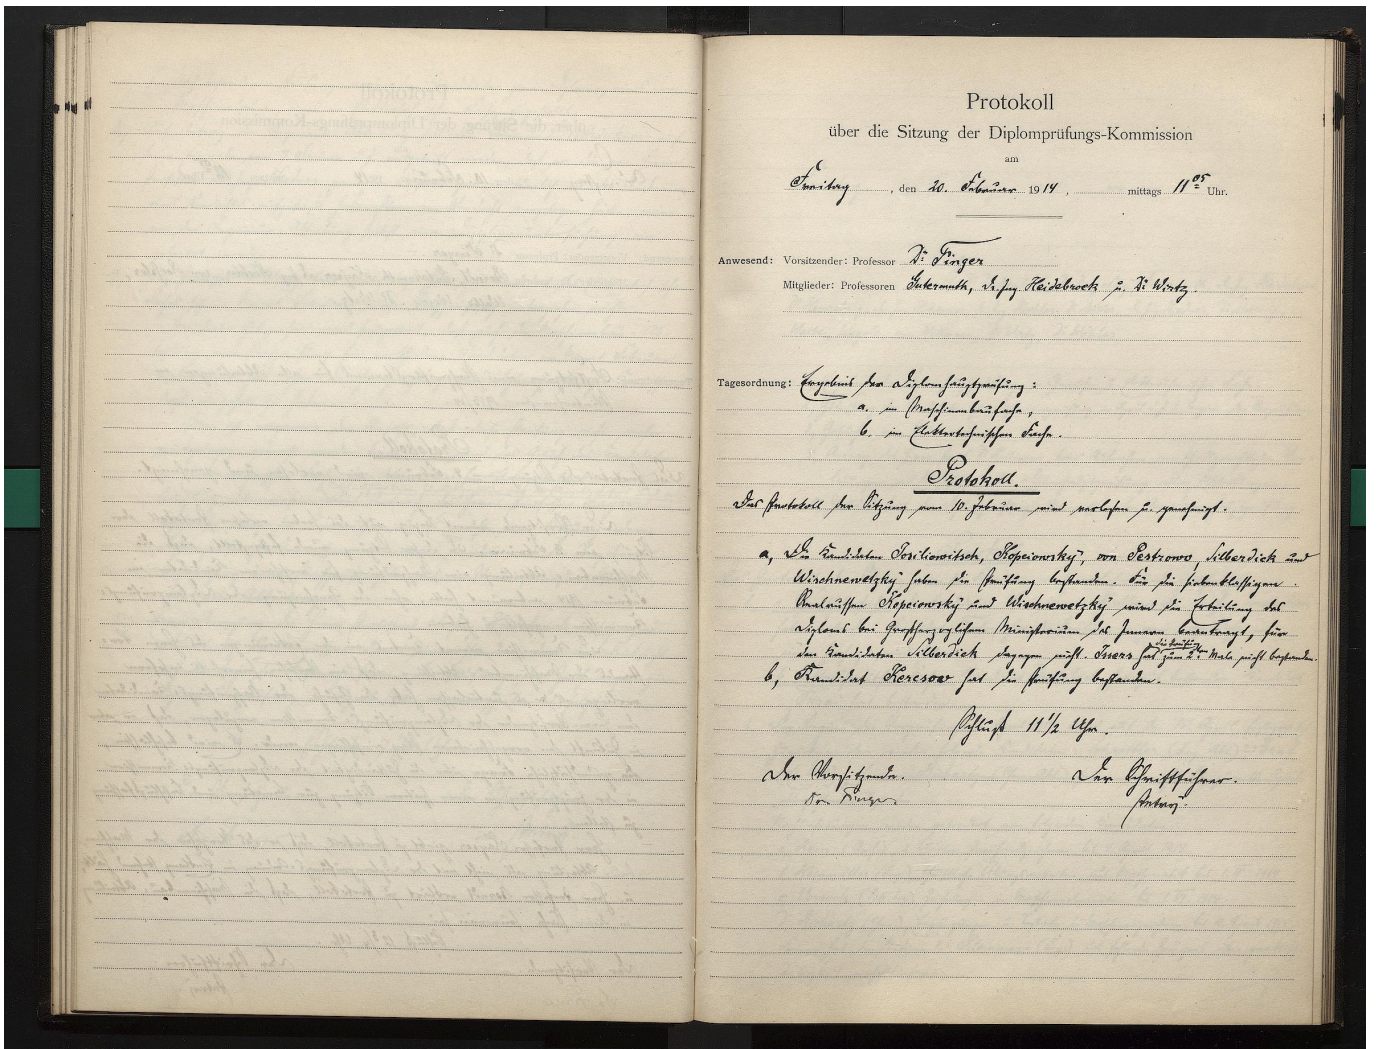 Protokoll
über die Sitzung der Diplomprüfungs-Kommission
am
Freitag, den 20. Februar 1914, mittags 11 05 Uhr.
Anwesend: Vorsitzender: Professor Dr. Finger
Mitglieder: Professoren Gutermuth, Dr. Ing. Heidebroek u. Dr. Wirtz.
Tagesordnung: Ergebnis der Diplomhauptprüfung:
a. im Maschinenbaufache,
b. im Elektrotechnischen Fache.
Protokoll.
Das Protokoll der Sitzung vom 10. Februar wird verlesen u. genehmigt.
a, Die Kandidaten Josiliowitsch, Kopciowský, von Pestrowo, Silberdick und
Wischnewetzký haben die Prüfung bestanden. Für die siebenklassigen
Realrussen Kopciowský und Wischnewetzký wird die Erteilung des
Diploms bei Großherzoglichem Ministerium des Innern beantragt, für
den Kandidaten Silberdick dagegen nicht. Jsers hat die Prüfung zum 2ten Male nicht bestanden.
b, Kandidat Keresow hat die Prüfung bestanden.
Schluß 11 1/2 Uhr.
Der Vorsitzende. Der Schriftführer.
Finger